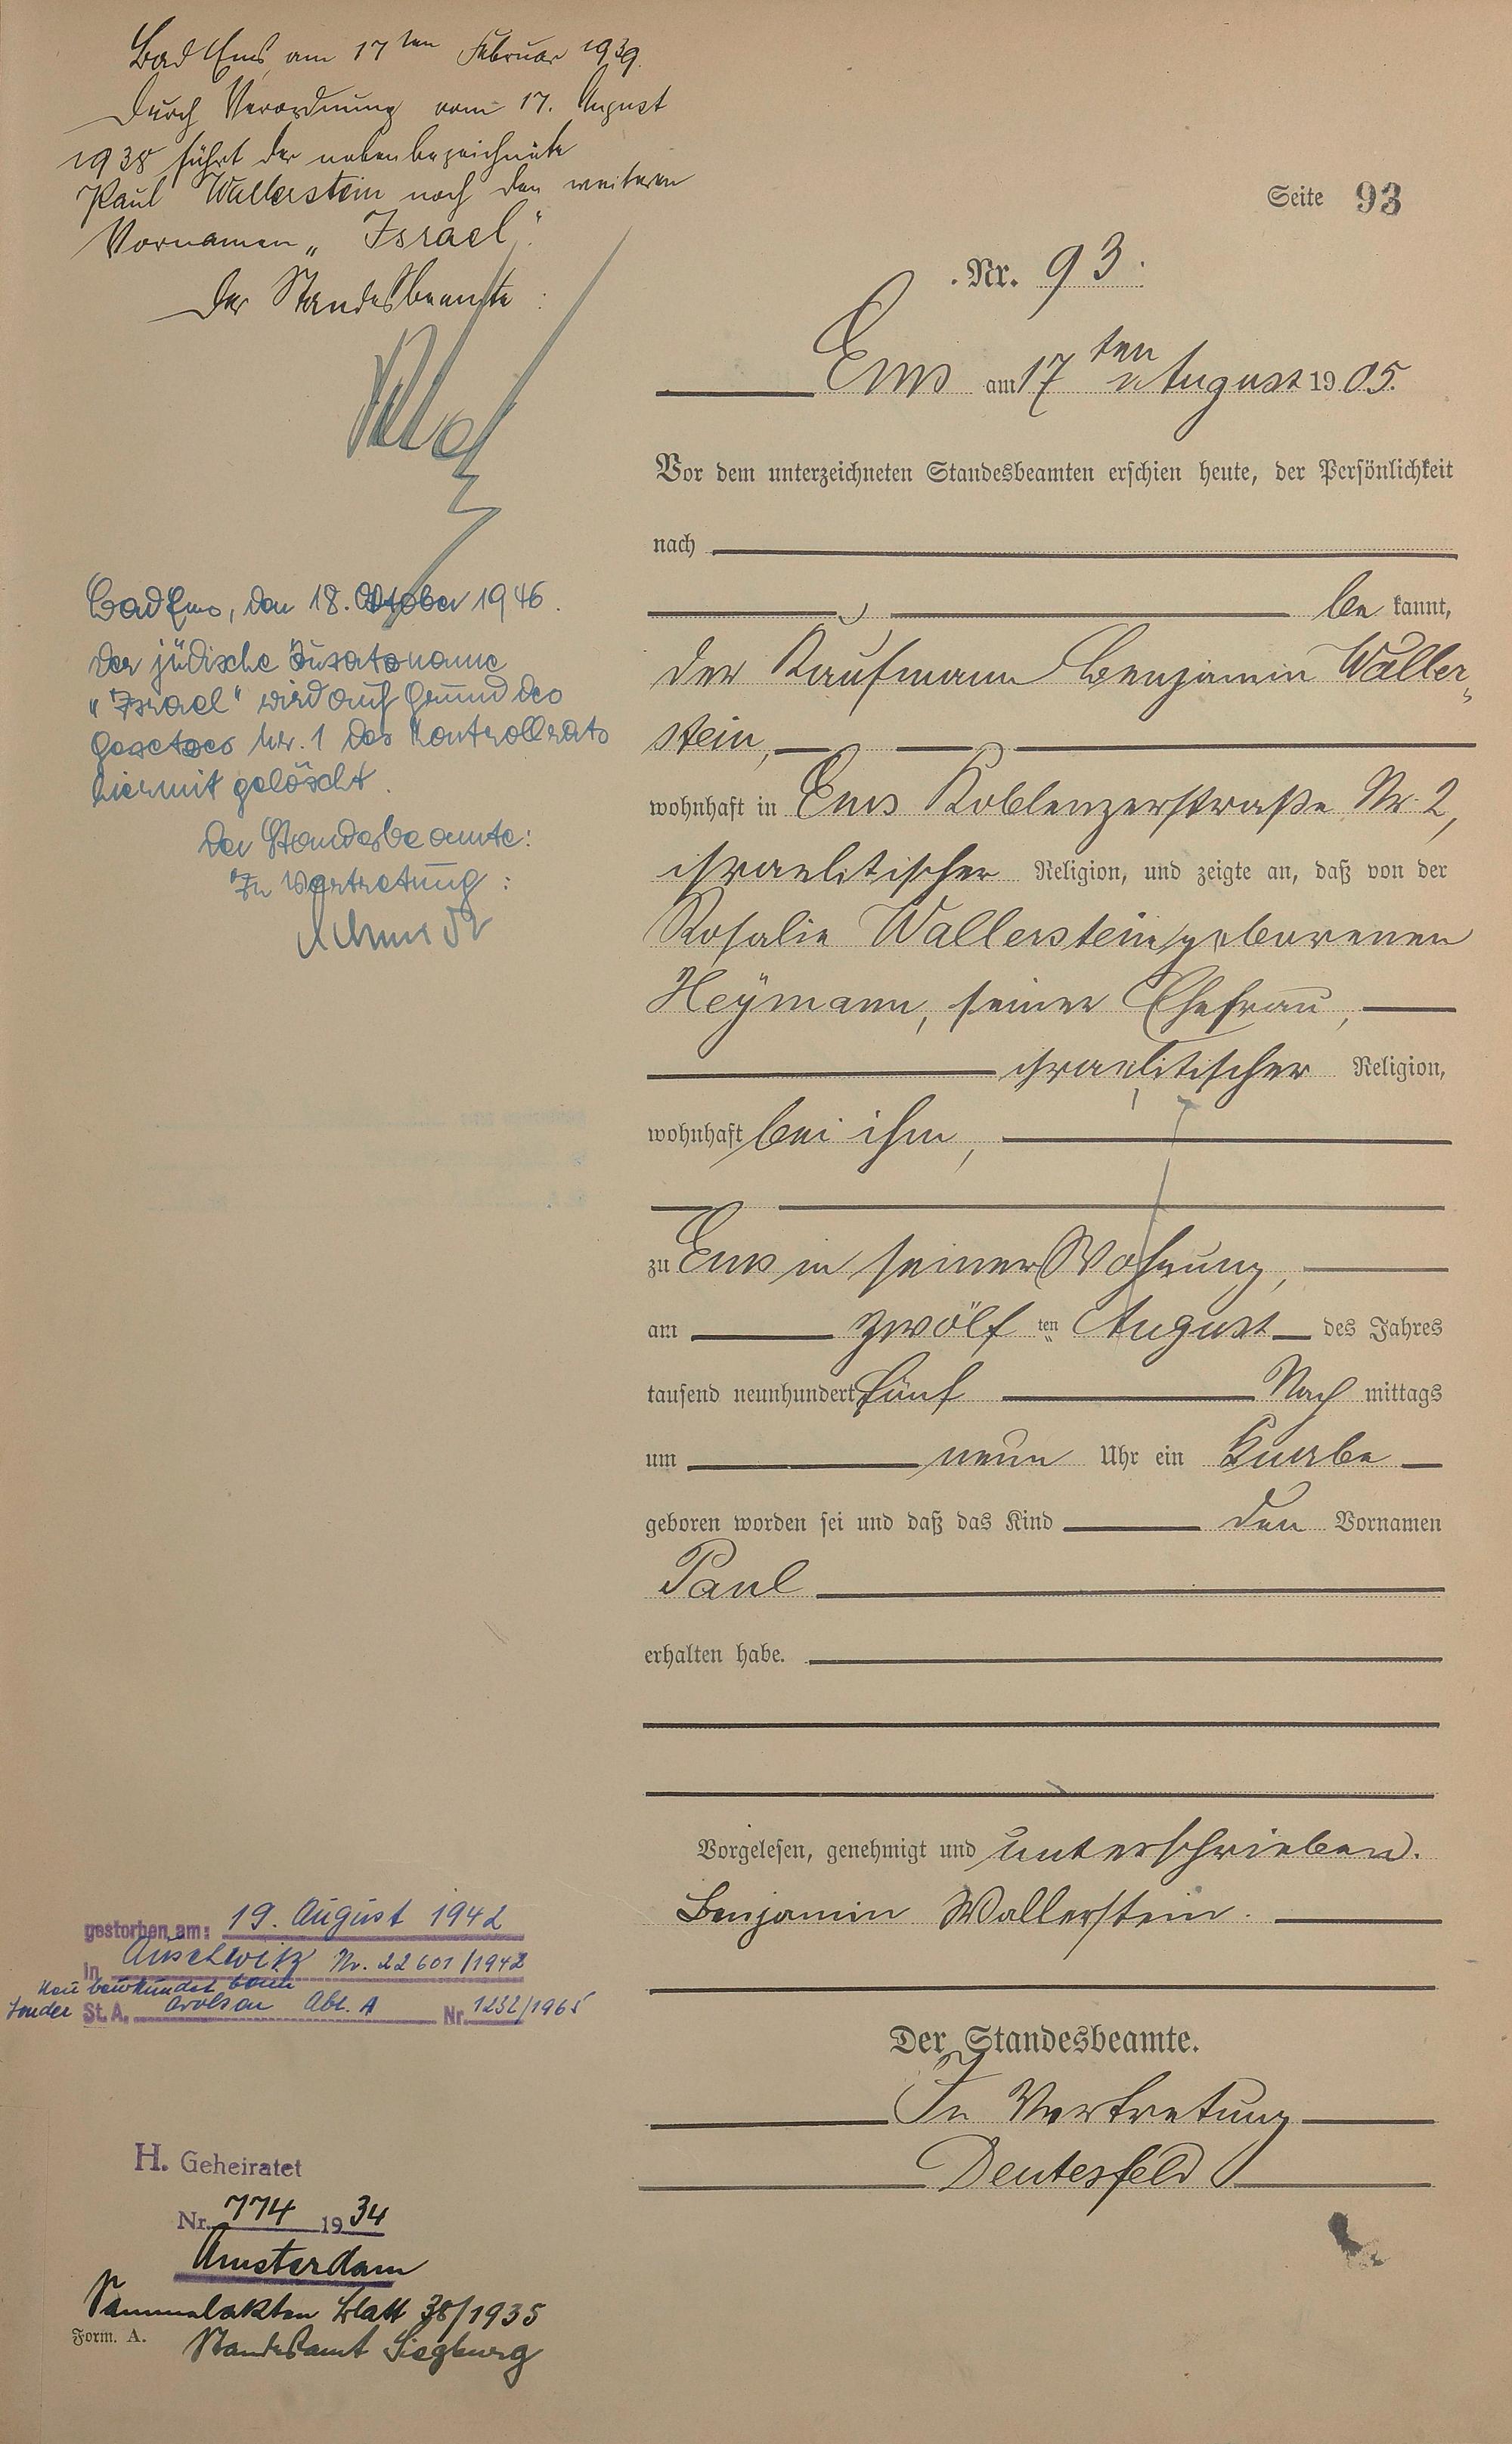 Bad Ems, am 17ten Februar 1939.
Durch Verordnung vom 17. August
1938 führt der nebenbezeichnete
Paul Wallerstein noch den weiteren
Vornamen „Israel“.
Der Standesbeamte:
Bad Ems, den 18. Oktober 1946.
Der jüdische Zusatzname
„Israel“ wird auf Grund des
Gesetzes Nr. 1 des Kontrollrats
hiermit gelöscht.
Der Standesbeamte:
In Vertretung:
Schmidt
Seite 93
Nr. 93.
Ems am 17ten August 1905.
Vor dem unterzeichneten Standesbeamten erschien heute, der Persönlichkeit
nach
be kannt,
der Kaufmann Benjamin Waller-
stein,
wohnhaft in Ems Koblenzerstraße Nr. 2,
israelitischer Religion, und zeigte an, daß von der
Rosalie Wallerstein geborenen
Heymann, seiner Ehefrau,
israelitischer Religion,
wohnhaft bei ihm,
zu Ems in seiner Wohnung,
am zwölf ten August des Jahres
tausend neunhundert fünf Nach mittags
um neun Uhr ein Knabe
geboren worden sei und daß das Kind den Vornamen
Paul
erhalten habe.
Vorgelesen, genehmigt und unterschrieben.
Benjamin Wallerstein.
Der Standesbeamte.
In Vertretung
Deutesfeld
gestorben am: 19. August 1942
in Auschwitz Nr. 22601/1942
Neu beurkundet beim
Sonder St. A. Arolsen Abt. A Nr. 1232/1965
H. Geheiratet
Nr. 774 1934
Amsterdam
Sammelakten Blatt 38/1935
Form. A. Standesamt Siegburg